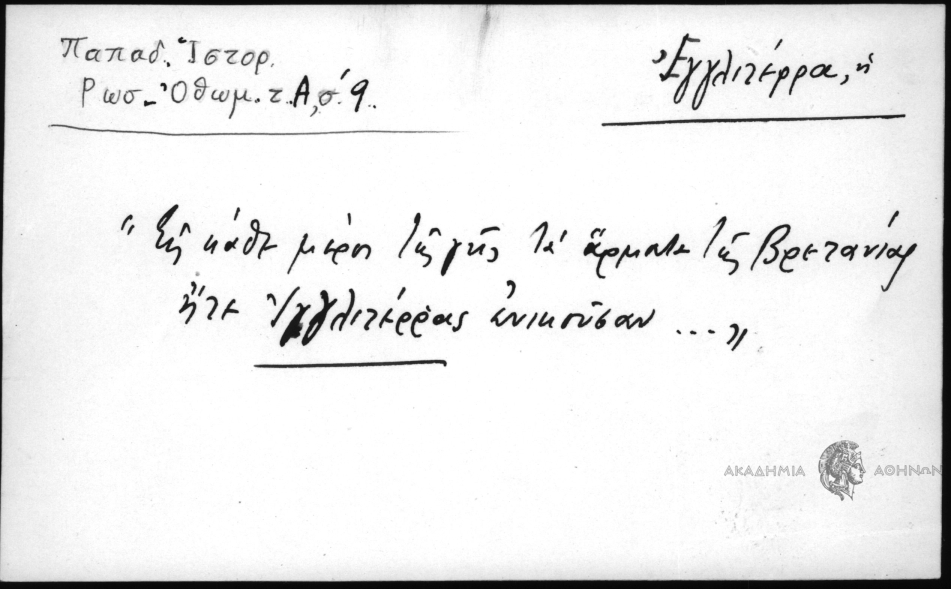 Παπαδ. Ἱστορ.
Ρωσ.-Ὀθωμ. τ. Α, σ. 9.
Ἐγγλιτέρρα, ἡ
"Εἰς κάθε μέρος τῆς γῆς τὰ ἅρματα τῆς Βρετανίας
ἤτε Ἰγγλιτέρρας ἐνικοῦσαν ..."
ΑΚΑΔΗΜΙΑ ΑΘΗΝΩΝ